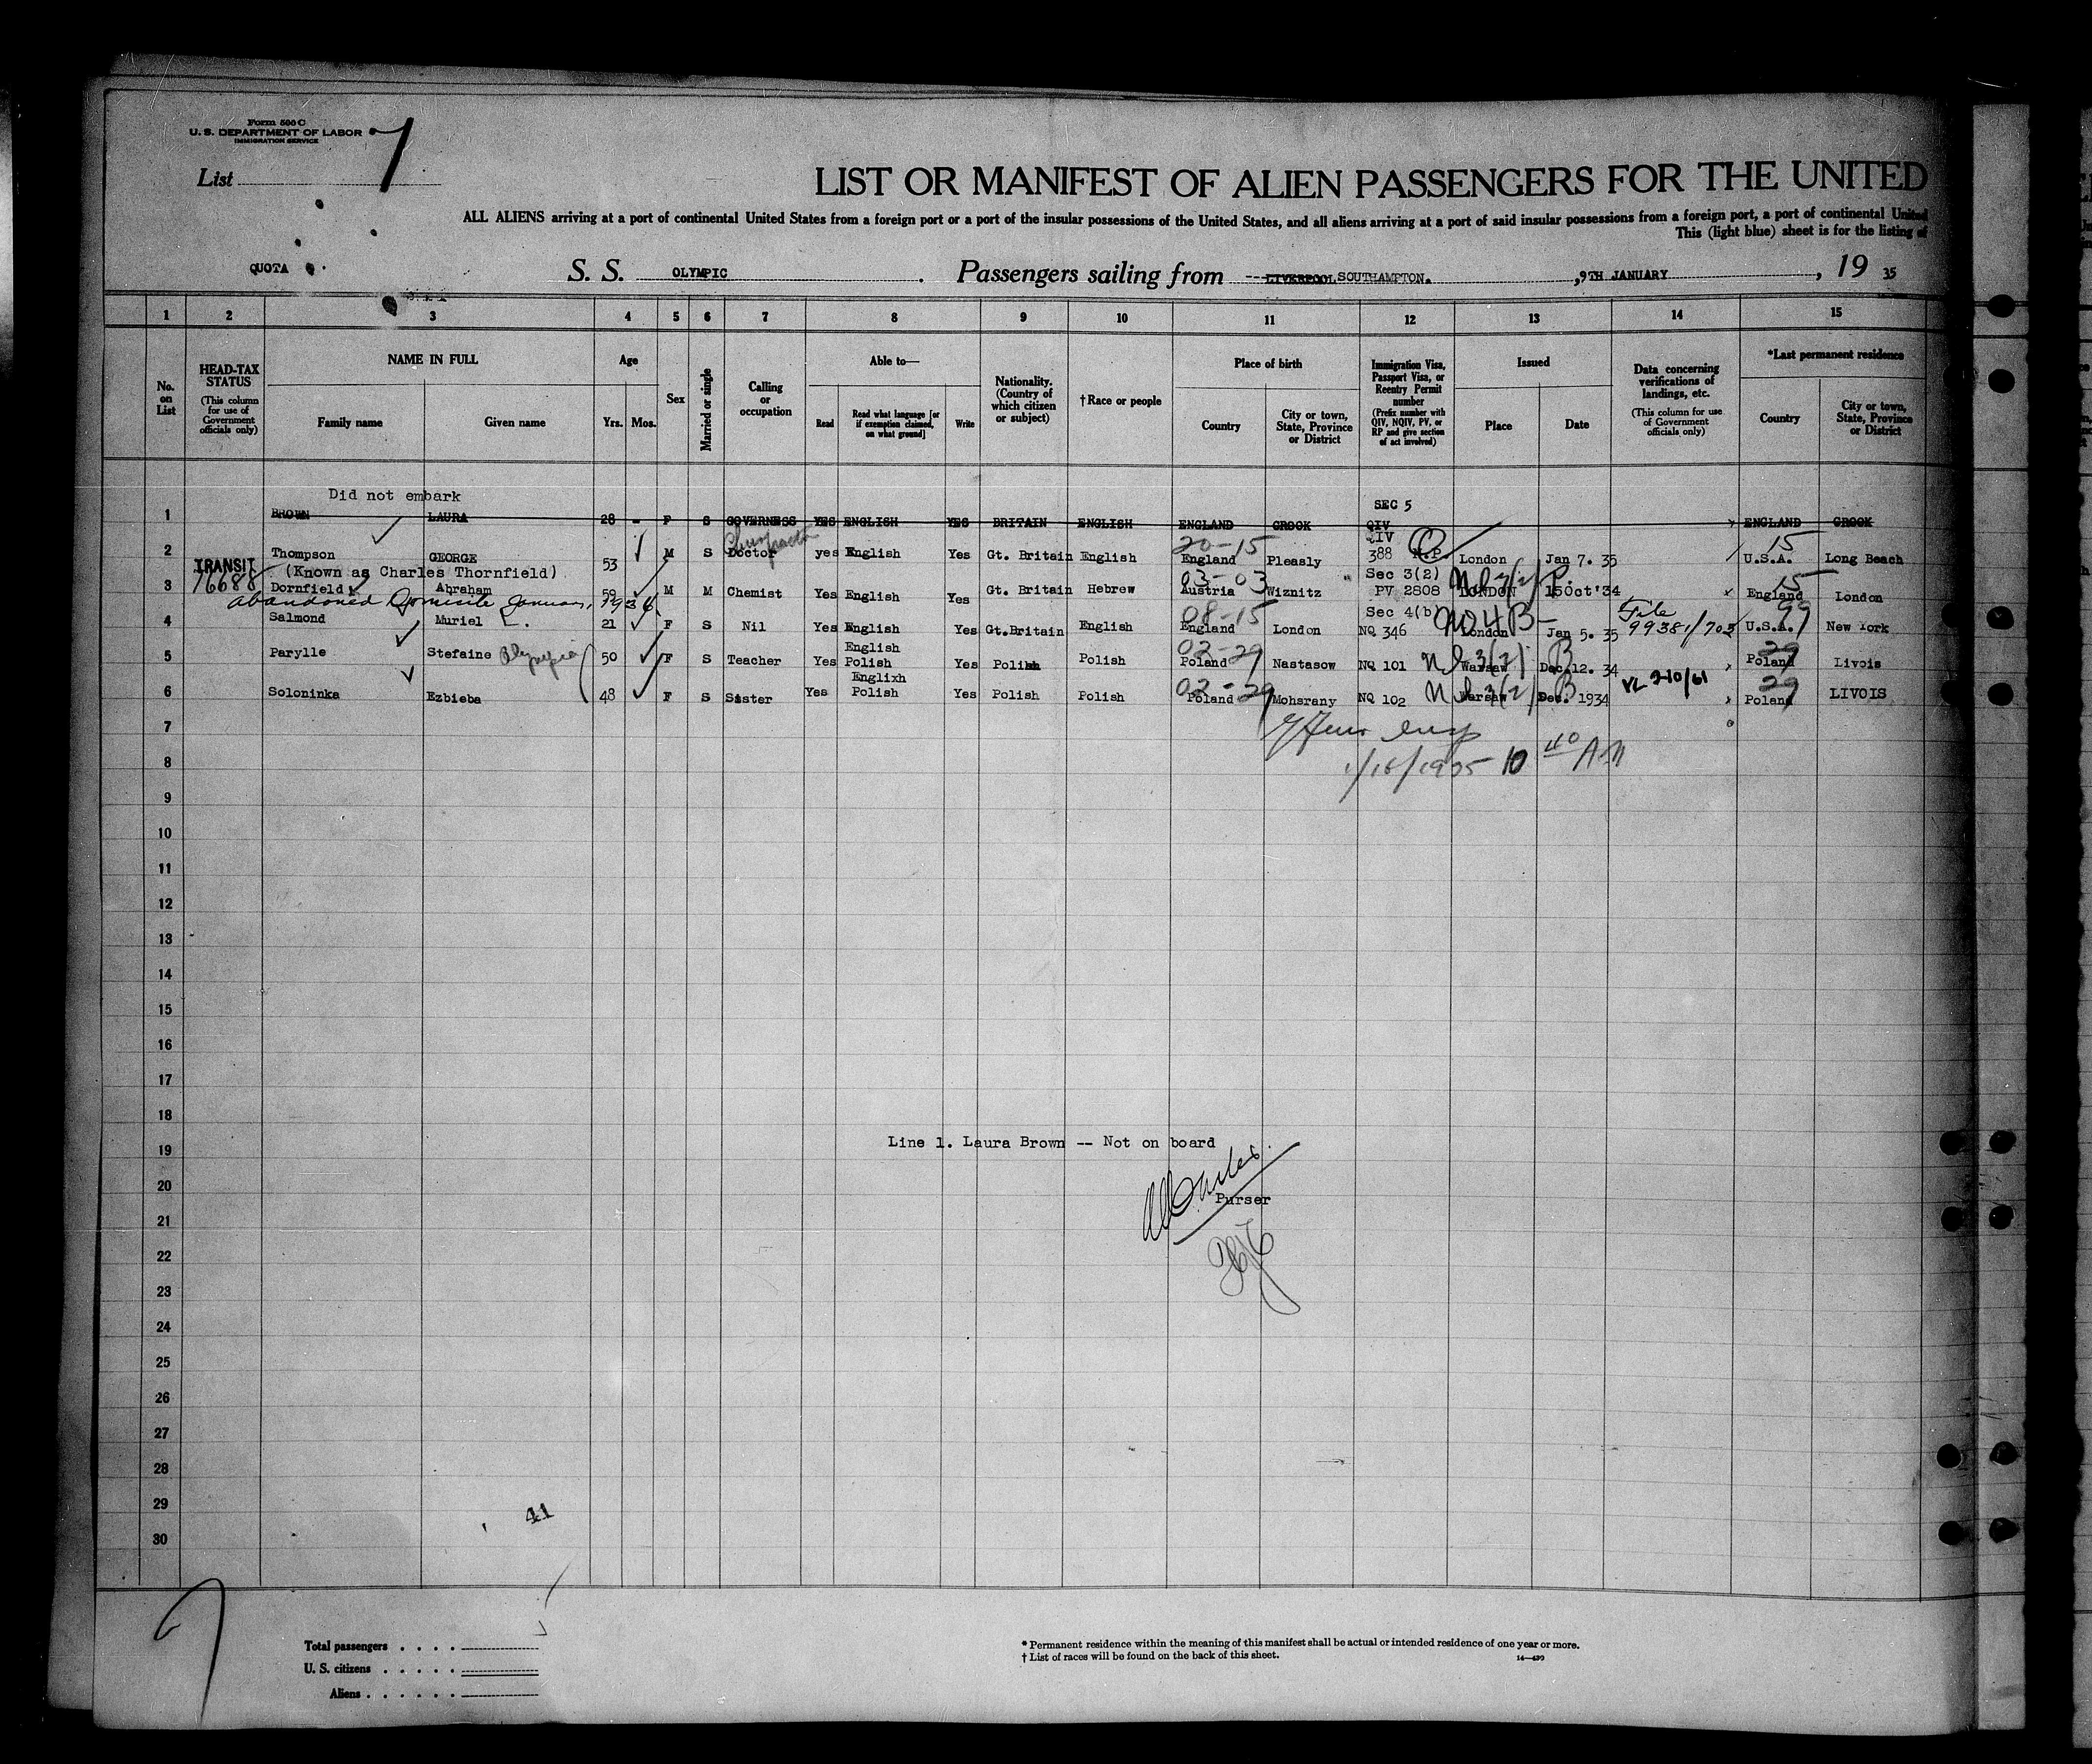 Form 500 C
U. S. DEPARTMENT OF LABOR
IMMIGRATION SERVICE
List 7
LIST OR MANIFEST OF ALIEN PASSENGERS FOR THE UNITED
ALL ALIENS arriving at a port of continental United States from a foreign port or a port of the insular possessions of the United States, and all aliens arriving at a port of said insular possessions from a foreign port, a port of continental United
This (light blue) sheet is for the listing of
QUOTA S. S. OLYMPIC . Passengers sailing from LIVERPOOL SOUTHAMPTON. , 9TH JANUARY , 19 35
1 2 3 4 5 6 7 8 9 10 11 12 13 14 15
No. on List
HEAD-TAX STATUS (This column for use of Government officials only)
NAME IN FULL Family name Given name
Age Yrs. Mos.
Sex
Married or single
Calling or occupation
Able to— Read Read what language [or if exemption claimed, on what ground] Write
Nationality. (Country of which citizen or subject)
†Race or people
Place of birth Country City or town, State, Province or District
Immigration Visa, Passport Visa, or Reentry Permit number (Prefix number with QIV, NQIV, PV, or RP and give section of act involved)
Issued Place Date
Data concerning verifications of landings, etc. (This column for use of Government officials only)
*Last permanent residence Country City or town, State, Province or District
Did not embark SEC 5
1 BROWN LAURA 28 - F S GOVERNESS YES ENGLISH YES BRITAIN ENGLISH ENGLAND CROOK QIV ENGLAND CROOK
QIV
20-15 15
2 Thompson GEORGE 53 M S Doctor yes English Yes Gt. Britain English England Pleasly 388 N.P. London Jan 7. 35 U.S.A. Long Beach
TRANSIT (Known as Charles Thornfield) Sec 3(2)
76688 03-03 15
3 Dornfield Abraham 59 M M Chemist Yes English Yes Gt. Britain Hebrew Austria Wiznitz PV 2808 LONDON 15Oct'34 England London
abandoned Domicile January, 1934. Sec 4(b)
08-15 File 99
4 Salmond Muriel E. 21 F S Nil Yes English Yes Gt.Britain English England London NQ 346 London Jan 5. 35 99381/703 U.S.A. New York
English 02-29 29
5 Parylle Stefaine Olympia 50 F S Teacher Yes Polish Yes Polish Polish Poland Nastasow NQ 101 Warsaw Dec.12. 34 Poland Livois
Englixh 02-29 29
6 Soloninka Ezbieba 48 F S Sister Yes Polish Yes Polish Polish Poland Mohsrany NQ 102 Warsaw Dec. 1934 VL 2-10/61 Poland LIVOIS
7
8 1/16/1935 10 40 A M
9
10
11
12
13
14
15
16
17
18
19 Line 1. Laura Brown -- Not on board
20 Purser
21
22
23
24
25
26
27
28
29 41
30
Total passengers . . . .
U. S. citizens . . . . .
Aliens . . . . . .
* Permanent residence within the meaning of this manifest shall be actual or intended residence of one year or more.
† List of races will be found on the back of this sheet. 14—430